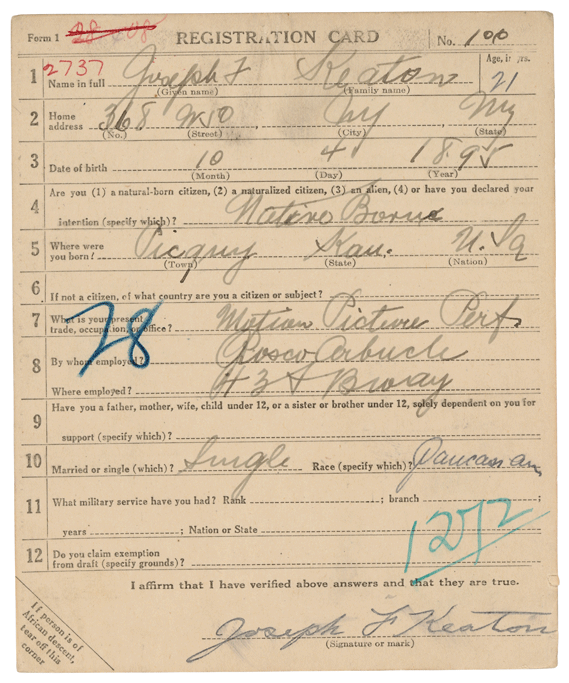 Form 1 28-108 REGISTRATION CARD No. 100
1 2737 Joseph F Keaton Age, in yrs. 21
Name in full (Given name) (Family name)
2 Home address 368 W 50 NY NY
(No.) (Street) (City) (State)
3 Date of birth 10 4 1895
(Month) (Day) (Year)
4 Are you (1) a natural-born citizen, (2) a naturalized citizen, (3) an alien, (4) or have you declared your
intention (specify which)? Native Born
5 Where were you born? Picqny Kan. U.S.a
(Town) (State) (Nation)
6 If not a citizen, of what country are you a citizen or subject?
7 What is your present trade, occupation, or office? Motion Picture Perf.
28
8 By whom employed? Rosco Arbucle
Where employed? 43 & Bway
9 Have you a father, mother, wife, child under 12, or a sister or brother under 12, solely dependent on you for
support (specify which)?
10 Married or single (which)? Single Race (specify which)? Caucasian
11 What military service have you had? Rank ; branch ;
years ; Nation or State
1272
12 Do you claim exemption from draft (specify grounds)?
I affirm that I have verified above answers and that they are true.
Joseph F Keaton
(Signature or mark)
If person is of
African descent,
tear off this
corner